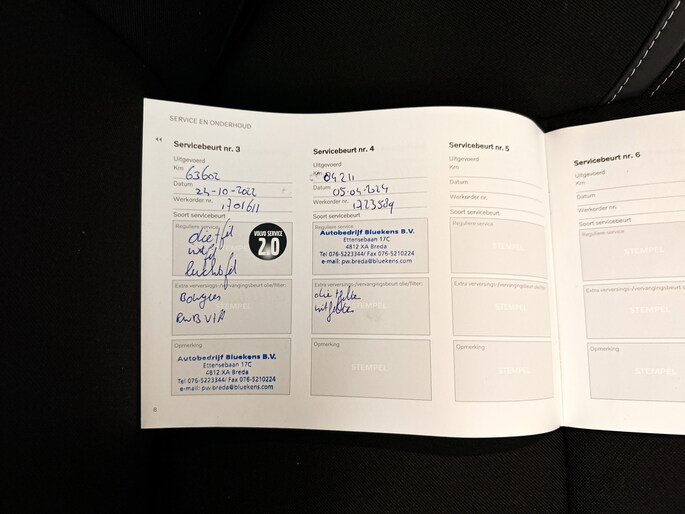 SERVICE EN ONDERHOUD
Servicebeurt nr. 3
Uitgevoerd
Km 63602
Datum 24-10-2022
Werkorder nr. 1701611
Soort servicebeurt
Reguliere service
VOLVO SERVICE
2.0
Extra verversings-/vervangingsbeurt olie/filters
Opmerking
Autobedrijf Bluekens B.V.
Ettensebaan 17C
4812 XA Breda
Tel 076-5223344/ Fax 076-5210224
e-mail: pw.breda@bluekens.com
8
Servicebeurt nr. 4
Uitgevoerd
Km
Datum 05-04-2024
Werkorder nr. 1723589
Soort servicebeurt
Reguliere service
Autobedrijf Bluekens B.V.
Ettensebaan 17C
4812 XA Breda
Tel 076-5223344/ Fax 076-5210224
e-mail: pw.breda@bluekens.com
Extra verversings-/vervangingsbeurt olie/filters
Opmerking
STEMPEL
Servicebeurt nr. 5
Uitgevoerd
Km
Datum
Werkorder nr.
Soort servicebeurt
Reguliere service
STEMPEL
Extra verversings-/vervangingsbeurt
STEMPEL
Opmerking
STEMPEL
Servicebeurt nr. 6
Uitgevoerd
Km
Datum
Werkorder nr.
Soort servicebeurt
Reguliere service
STEMPEL
Extra verversings-/vervangingsbeurt
STEMPEL
Opmerking
STEMPEL